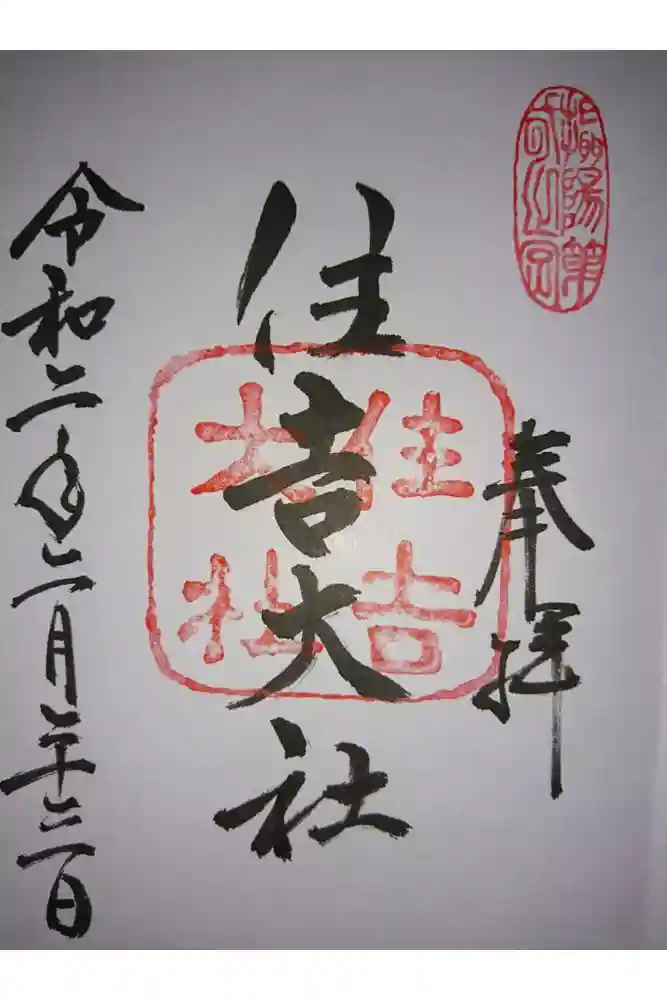 攝陽第
奉拝
住吉大社
住吉
大社
令和二年二月二十三日